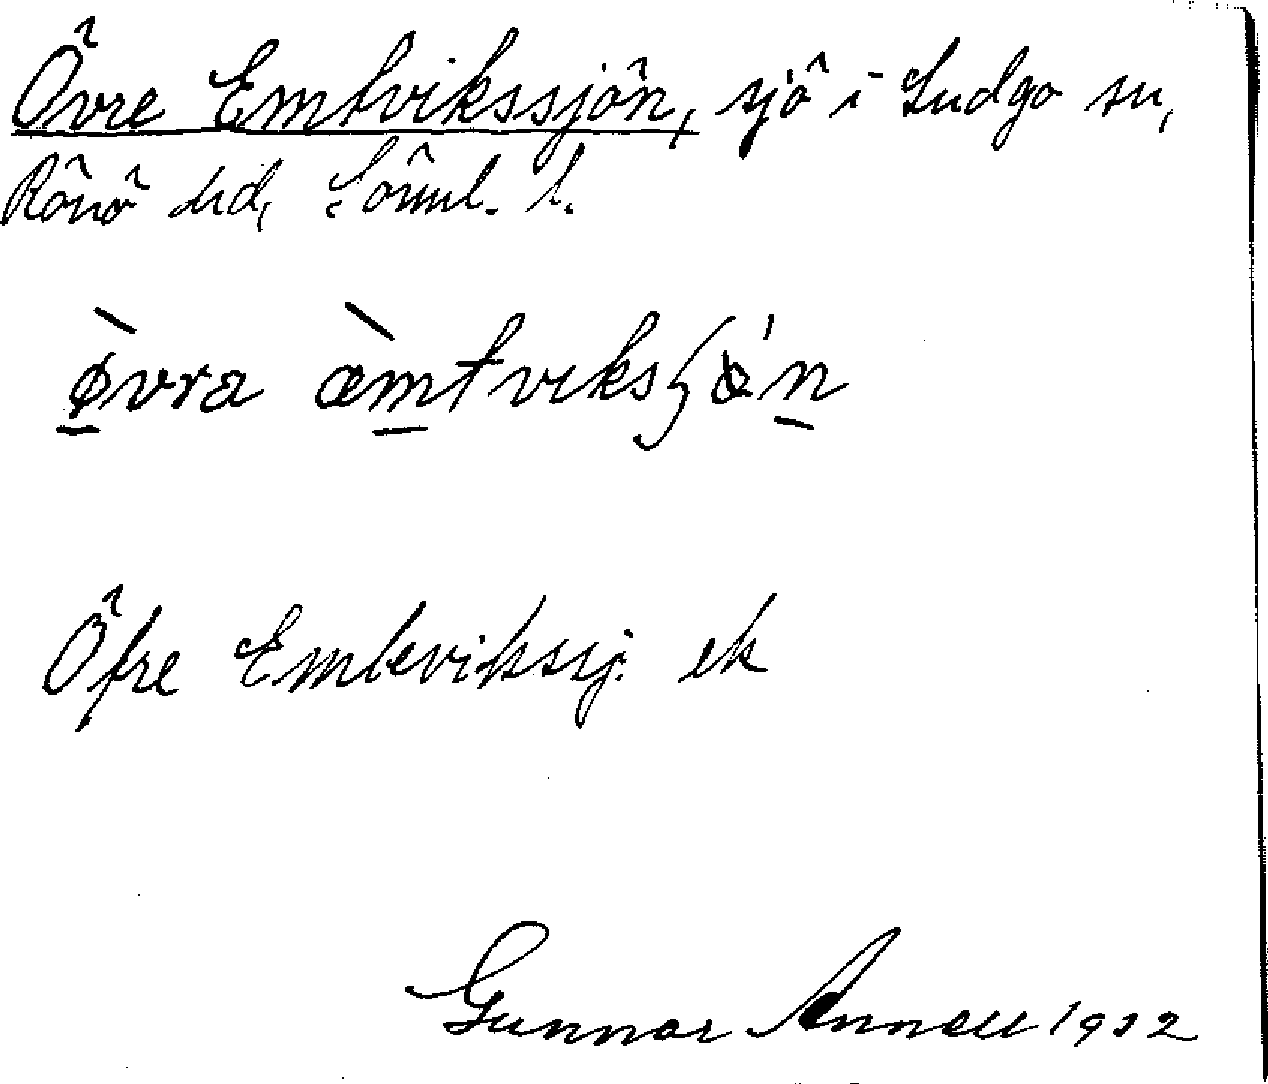 Övre Emtvikssjön, sjö i Ludgo sn,
Rönö hd, Söml. l.
ø̀vra æ̀mtviksʃǿn
Öfre Emtevikssj. ek
Gunnar Annell 1932